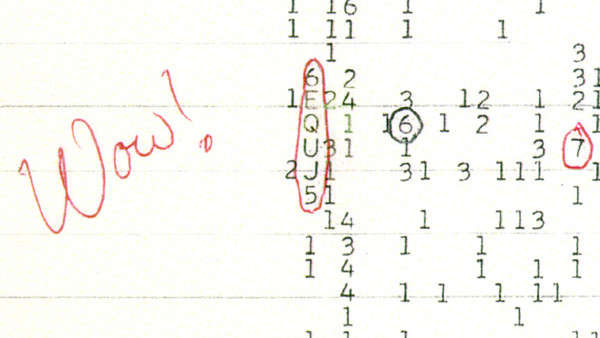 1 16 1 1
1 11 1 1
1 3
6 2 31
1 E 24 3 12 1 21
Q 1 16 1 2 1 1
U 31 1 3 7
2 J 1 31 3 111 1
5 1 1
14 1 113
1 3 1 1 1
1 4 1 1 1
4 1 1 1 11
1 1
Wow!